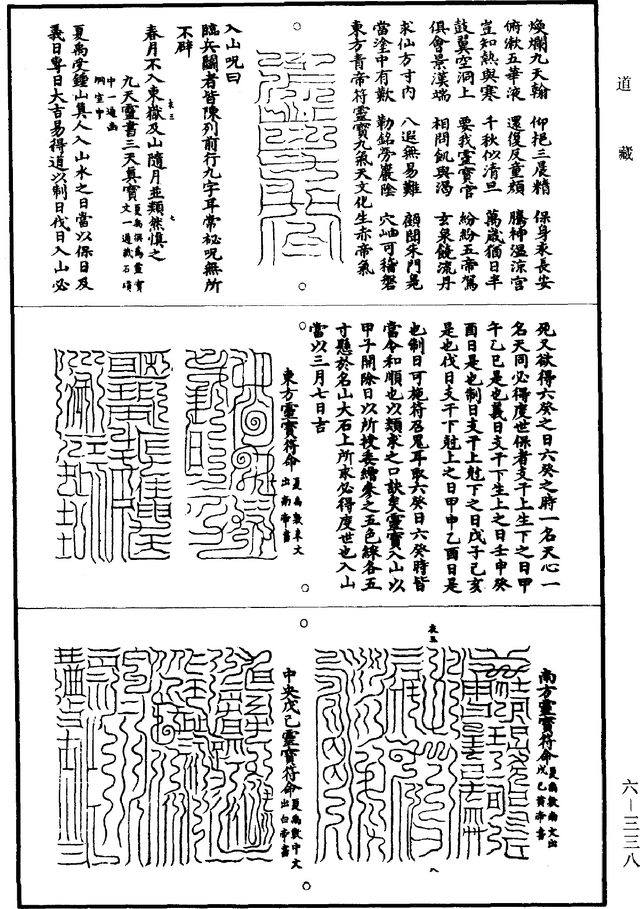 道藏
煥爛九天翰　仰挹三晨精　保身永長安
俯漱五華液　還復反童顏　騰神溫涼宮
豈知熱與寒　千秋似清旦　萬歲猶日半
鼓翼空洞上　要我靈寶官　紛紛五帝駕
俱會景漢端　相問飢與渴　玄泉饒流丹
求仙方寸內　八遐無易難　顧聞朱門
當塗中有歎　勒銘勞巖陰　穴岫可稽磐
東方青帝符靈寶九氣天文化生赤帝氣
入山呪曰
臨兵鬭者皆陳列前行九字耳常祕呪無所
不辟
春月不入東嶽及山隨月並類然慎之
九天靈書三天真寶夏禹撰為靈寶文一通藏石碩
中一通函
洞室中
夏禹受鍾山真人入山水之日當以保日及
義日專日大吉易得道以制日伐日入山必
死又欲得六癸之日六癸之時一名天心一
名天同必得度世保者支干上生下之日甲
午乙巳是也義日支干下生上之日壬申癸
酉日是也制日支干上尅下之日戊子己亥
是也伐日支干下尅上之日甲申乙酉日是
也制日可施符召鬼耳取六癸日六癸時皆
當令和順也以類求之口訣矣靈寶入山以
甲子開除日以所授委繒參之五色綵各五
寸懸於名山大石上所求必得度世也入山
當以三月七日吉
東方靈寶符命夏禹敷東文出南帝書
南方靈寶符命夏禹敷南文出戊己黃帝書
中央戊己靈寶符命夏禹敷中文出白帝書
六—三三八